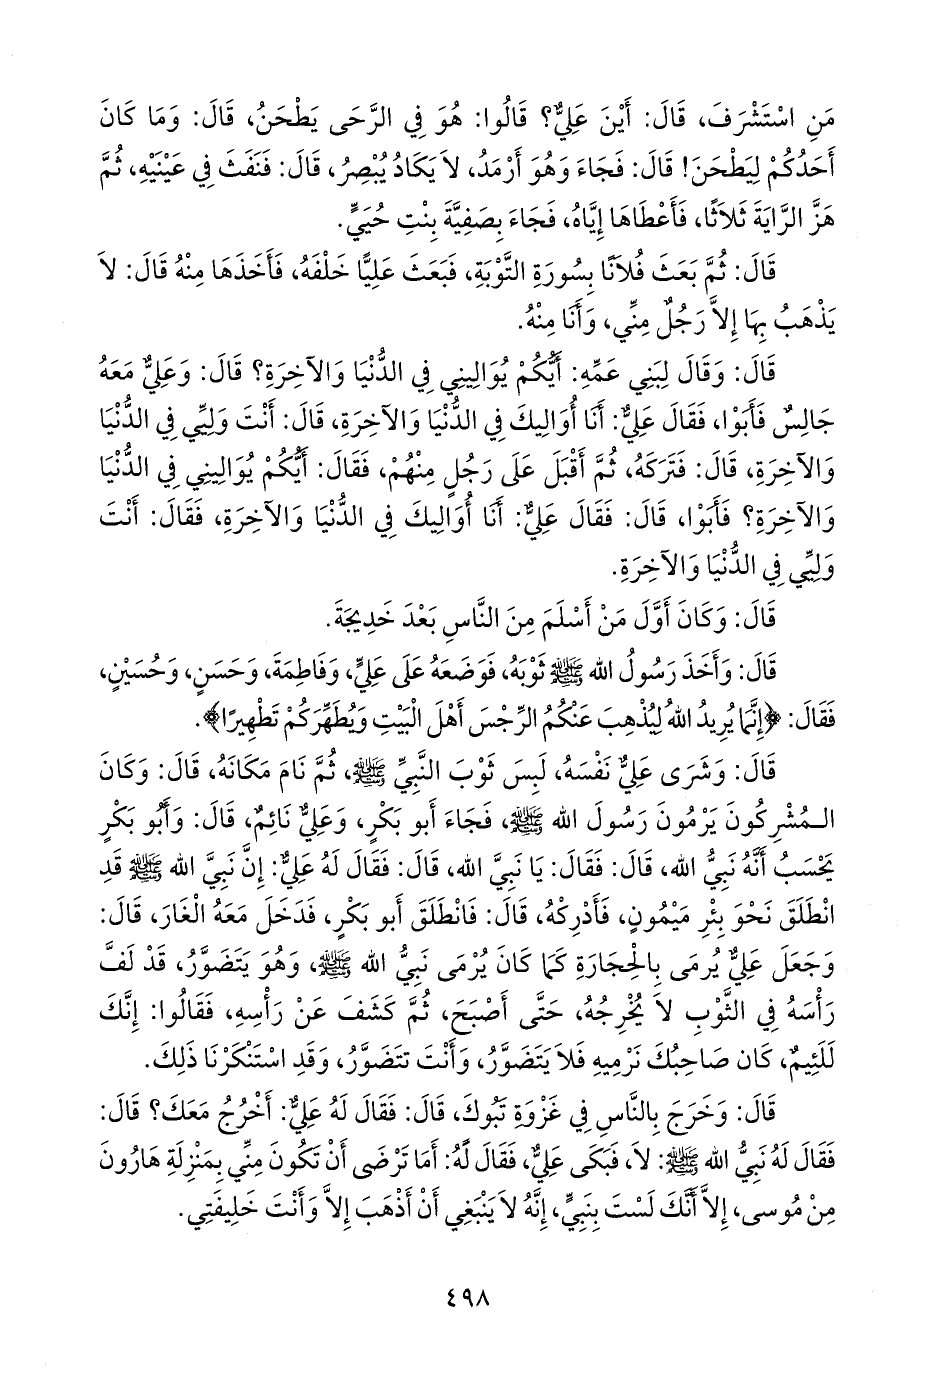 مَنِ اسْتَشْرَفَ، قَالَ: أَيْنَ عَلِيٌّ؟ قَالُوا: هُوَ فِي الرَّحَى يَطْحَنُ، قَالَ: وَمَا كَانَ
أَحَدُكُمْ لِيَطْحَنَ! قَالَ: فَجَاءَ وَهُوَ أَرْمَدُ، لاَ يَكَادُ يُبْصِرُ، قَالَ: فَنَفَثَ فِي عَيْنَيْهِ، ثُمَّ
هَزَّ الرَّايَةَ ثَلاَثًا، فَأَعْطَاهَا إِيَّاهُ، فَجَاءَ بِصَفِيَّةَ بِنْتِ حُيَيٍّ.
قَالَ: ثُمَّ بَعَثَ فُلاَنًا بِسُورَةِ التَّوْبَةِ، فَبَعَثَ عَلِيًّا خَلْفَهُ، فَأَخَذَهَا مِنْهُ قَالَ: لاَ
يَذْهَبُ بِهَا إِلاَّ رَجُلٌ مِنِّي، وَأَنَا مِنْهُ.
قَالَ: وَقَالَ لِبَنِي عَمِّهِ: أَيُّكُمْ يُوَالِينِي فِي الدُّنْيَا وَالآخِرَةِ؟ قَالَ: وَعَلِيٌّ مَعَهُ
جَالِسٌ فَأَبَوْا، فَقَالَ عَلِيٌّ: أَنَا أُوَالِيكَ فِي الدُّنْيَا وَالآخِرَةِ، قَالَ: أَنْتَ وَلِيِّي فِي الدُّنْيَا
وَالآخِرَةِ، قَالَ: فَتَرَكَهُ، ثُمَّ أَقْبَلَ عَلَى رَجُلٍ مِنْهُمْ، فَقَالَ: أَيُّكُمْ يُوَالِينِي فِي الدُّنْيَا
وَالآخِرَةِ؟ فَأَبَوْا، قَالَ: فَقَالَ عَلِيٌّ: أَنَا أُوَالِيكَ فِي الدُّنْيَا وَالآخِرَةِ، فَقَالَ: أَنْتَ
وَلِيِّي فِي الدُّنْيَا وَالآخِرَةِ.
قَالَ: وَكَانَ أَوَّلَ مَنْ أَسْلَمَ مِنَ النَّاسِ بَعْدَ خَدِيجَةَ.
قَالَ: وَأَخَذَ رَسُولُ الله ﷺ ثَوْبَهُ، فَوَضَعَهُ عَلَى عَلِيٍّ، وَفَاطِمَةَ، وَحَسَنٍ، وَحُسَيْنٍ،
فَقَالَ: ﴿إِنَّمَا يُرِيدُ اللهُ لِيُذْهِبَ عَنْكُمُ الرِّجْسَ أَهْلَ الْبَيْتِ وَيُطَهِّرَكُمْ تَطْهِيرًا﴾.
قَالَ: وَشَرَى عَلِيٌّ نَفْسَهُ، لَبِسَ ثَوْبَ النَّبِيِّ ﷺ، ثُمَّ نَامَ مَكَانَهُ، قَالَ: وَكَانَ
الـمُشْرِكُونَ يَرْمُونَ رَسُولَ الله ﷺ، فَجَاءَ أَبو بَكْرٍ، وَعَلِيٌّ نَائِمٌ، قَالَ: وَأَبُو بَكْرٍ
يَحْسَبُ أَنَّهُ نَبِيُّ الله، قَالَ: فَقَالَ: يَا نَبِيَّ الله، قَالَ: فَقَالَ لَهُ عَلِيٌّ: إِنَّ نَبِيَّ الله ﷺ قَدِ
انْطَلَقَ نَحْوَ بِئْرِ مَيْمُونٍ، فَأَدْرِكْهُ، قَالَ: فَانْطَلَقَ أَبو بَكْرٍ، فَدَخَلَ مَعَهُ الْغَارَ، قَالَ:
وَجَعَلَ عَلِيٌّ يُرمَى بِالْحِجَارَةِ كَمَا كَانَ يُرْمَى نَبِيُّ الله ﷺ، وَهُوَ يَتَضَوَّرُ، قَدْ لَفَّ
رَأْسَهُ فِي الثَّوْبِ لاَ يُخْرِجُهُ، حَتَّى أَصْبَحَ، ثُمَّ كَشَفَ عَنْ رَأْسِهِ، فَقَالُوا: إِنَّكَ
لَلَئِيمٌ، كَان صَاحِبُكَ نَرْمِيهِ فَلاَ يَتَضَوَّرُ، وَأَنْتَ تتَضَوَّرُ، وَقَدِ اسْتَنْكَرْنَا ذَلِكَ.
قَالَ: وَخَرَجَ بِالنَّاسِ فِي غَزْوَةِ تَبُوكَ، قَالَ: فَقَالَ لَهُ عَلِيٌّ: أَخْرُجُ مَعَكَ؟ قَالَ:
فَقَالَ لَهُ نَبِيُّ الله ﷺ: لاَ، فَبَكَى عَلِيٌّ، فَقَالَ لَهُ: أَمَا تَرْضَى أَنْ تَكُونَ مِنِّي بِمَنْزِلَةِ هَارُونَ
مِنْ مُوسى، إِلاَّ أَنَّكَ لَسْتَ بِنَبِيٍّ، إِنَّهُ لاَ يَنْبَغِي أَنْ أَذْهَبَ إِلاَّ وَأَنْتَ خَلِيفَتِي.
٤٩٨